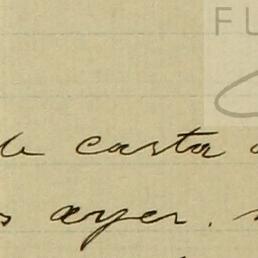 FU
de carta
s ayer.